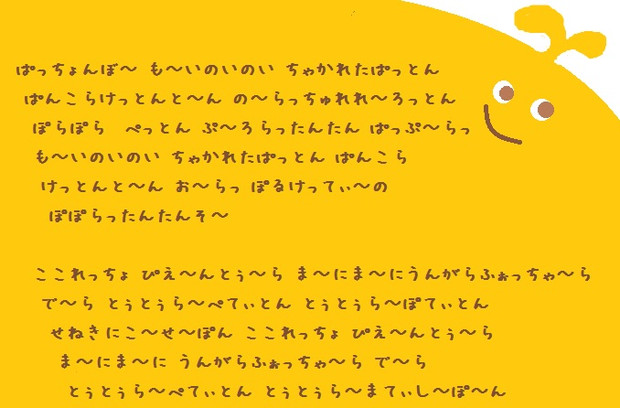 ぱっちょんぼ～ も～いのいのい ちゃかれたぱっとん
ぱんこらけっとんと～ん の～らっちゅれれ～ろっとん
ぽらぽら ぺっとん ぷ～ろらったんたん ぱっぷ～らっ
も～いのいのい ちゃかれたぱっとん ぱんこら
けっとんと～ん お～らっ ぽるけってぃ～の
ぽぽらったんたんそ～
ここれっちょ ぴえ～んとぅ～ら ま～にま～にうんがらふぉっちゃ～ら
で～ら とぅとぅら～ぺてぃとん とぅとぅら～ぽてぃとん
せねきにこ～せ～ぽん ここれっちょ ぴえ～んとぅ～ら
ま～にま～に うんがらふぉっちゃ～ら で～ら
とぅとぅら～ぺてぃとん とぅとぅら～まてぃし～ぽ～ん